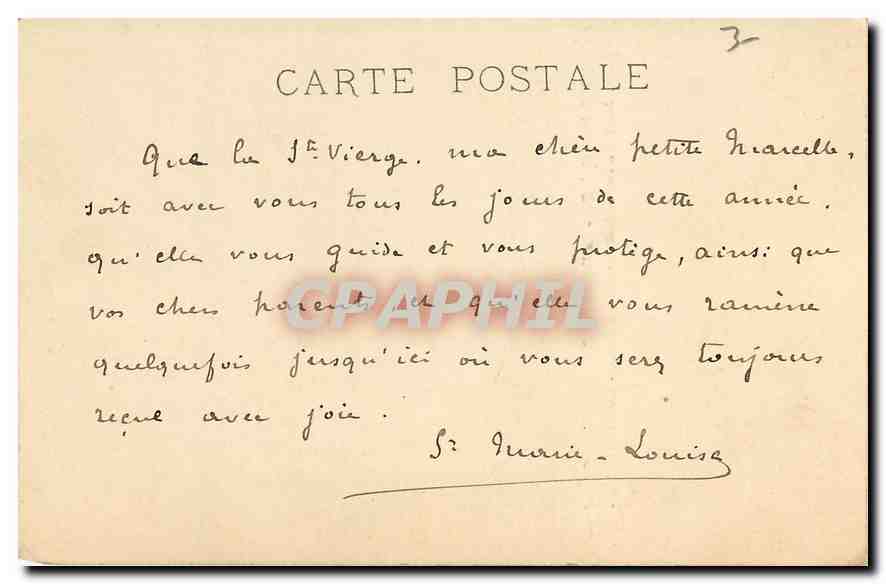 3
CARTE POSTALE
Que la Ste Vierge, ma chère petite Marcelle,
soit avec vous tous les jours de cette année,
qu'elle vous guide et vous protège, ainsi que
vos chers parents, et qu'elle vous ramène
CPAPHIL
quelquefois jusqu'ici où vous serez toujours
reçue avec joie.
Sr Marie-Louise